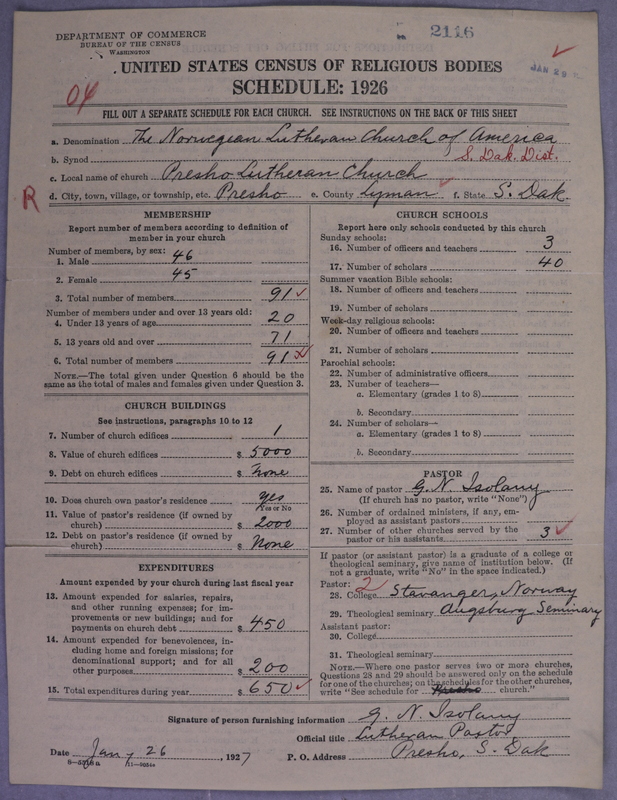 DEPARTMENT OF COMMERCE
BUREAU OF THE CENSUS
WASHINGTON
2116
JAN 29
UNITED STATES CENSUS OF RELIGIOUS BODIES
SCHEDULE: 1926
04
FILL OUT A SEPARATE SCHEDULE FOR EACH CHURCH. SEE INSTRUCTIONS ON THE BACK OF THIS SHEET
a. Denomination The Norwegian Lutheran Church of America
b. Synod S. Dak. Dist.
c. Local name of church Presho Lutheran Church
R
d. City, town, village, or township, etc. Presho e. County Lyman f. State S. Dak.
MEMBERSHIP
Report number of members according to definition of
member in your church
Number of members, by sex:
1. Male 46
2. Female 45
3. Total number of members 91
Number of members under and over 13 years old:
4. Under 13 years of age 20
5. 13 years old and over 71
6. Total number of members 91
NOTE.—The total given under Question 6 should be
same as the total of males and females given under Question 3.
CHURCH BUILDINGS
See instructions, paragraphs 10 to 12
7. Number of church edifices 1
8. Value of church edifices $ 5000
9. Debt on church edifices $ None
10. Does church own pastor's residence yes
Yes or No
11. Value of pastor's residence (if owned by
church) $ 2000
12. Debt on pastor's residence (if owned by
church) $ None
EXPENDITURES
Amount expended by your church during last fiscal year
13. Amount expended for salaries, repairs,
and other running expenses; for im-
provements or new buildings; and for
payments on church debt $ 450
14. Amount expended for benevolences, in-
cluding home and foreign missions; for
denominational support; and for all
other purposes $ 200
15. Total expenditures during year $ 650
CHURCH SCHOOLS
Report here only schools conducted by this church
Sunday schools:
16. Number of officers and teachers 3
17. Number of scholars 40
Summer vacation Bible schools:
18. Number of officers and teachers
19. Number of scholars
Week-day religious schools:
20. Number of officers and teachers
21. Number of scholars
Parochial schools:
22. Number of administrative officers
23. Number of teachers—
a. Elementary (grades 1 to 8)
b. Secondary
24. Number of scholars—
a. Elementary (grades 1 to 8)
b. Secondary
PASTOR
25. Name of pastor G. N. Isolany
(If church has no pastor, write "None")
26. Number of ordained ministers, if any, em-
ployed as assistant pastors
27. Number of other churches served by the
pastor or his assistants 3
If pastor (or assistant pastor) is a graduate of a college or
theological seminary, give name of institution below. (If
not a graduate, write "No" in the space indicated.)
Pastor: 2
28. College Stavanger, Norway
29. Theological seminary Augsburg Seminary
Assistant pastor:
30. College
31. Theological seminary
NOTE.—Where one pastor serves two or more churches,
Questions 28 and 29 should be answered only on the schedule
for one of the churches; on the schedules for the other churches,
write "See schedule for Presho church."
Signature of person furnishing information G. N. Isolany
Official title Lutheran Pastor
Date Jany 26, 1927 P. O. Address Presho, S. Dak